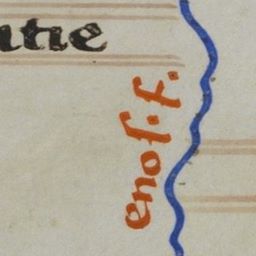 ntie
eno f. f.